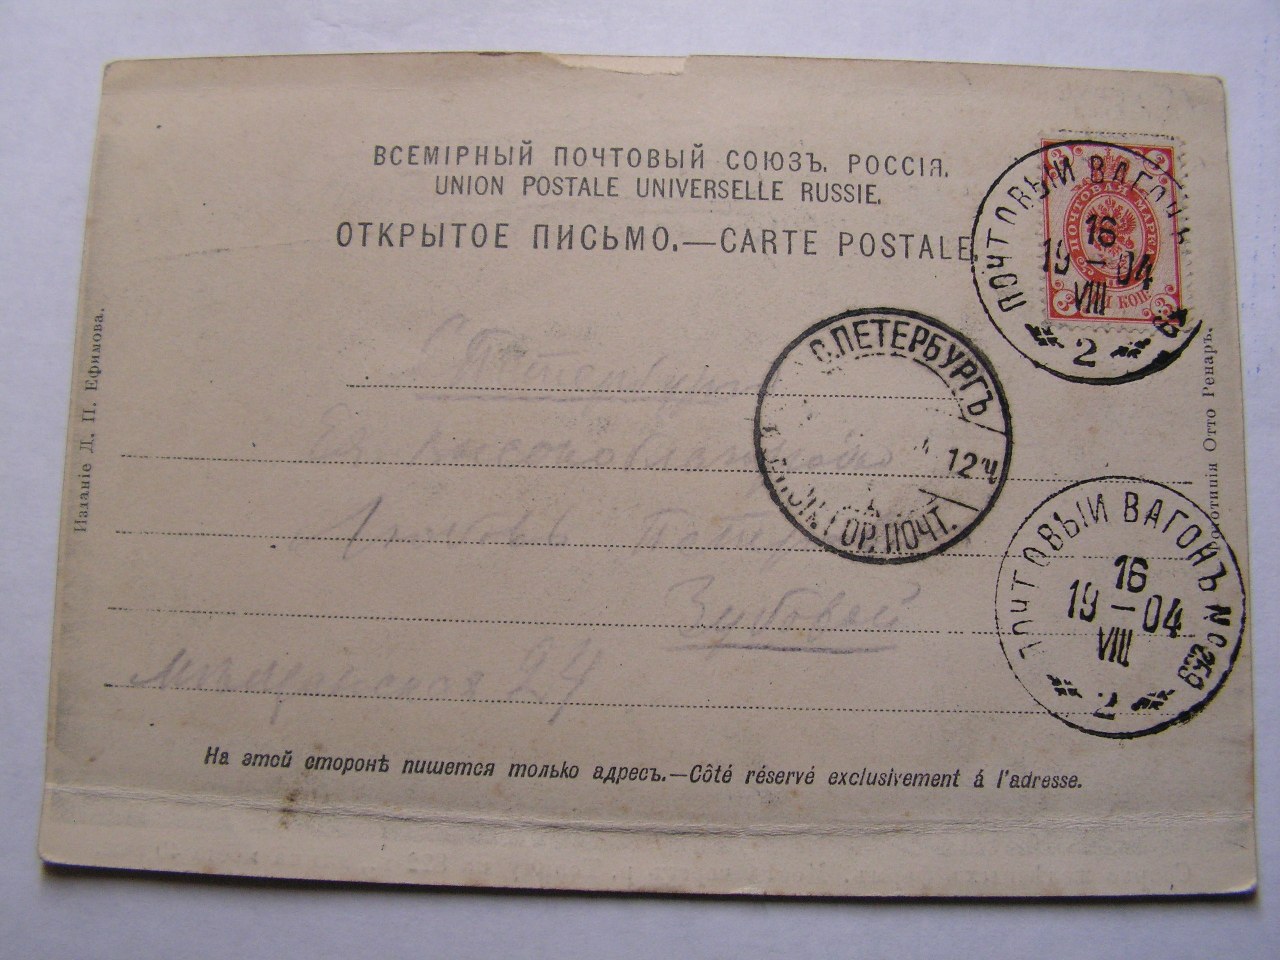 ВСЕМІРНЫЙ ПОЧТОВЫЙ СОЮЗЪ. РОССІЯ.
UNION POSTALE UNIVERSELLE RUSSIE.
ОТКРЫТОЕ ПИСЬМО.—CARTE POSTALE.
ПОЧТОВЫЙ ВАГОНЪ
16
19 — 04
VIII
2
ПОЧТОВАЯ МАРКА
КОП.
С.ПЕТЕРБУРГЪ
12 Ч
ГОР. ПОЧТ.
ПОЧТОВЫЙ ВАГОНЪ №
16
19 — 04
VIII
2
С Петербургъ
Зубовой
24
На этой сторонѣ пишется только адресъ.—Côté réservé exclusivement á l'adresse.
Изданіе Д. П. Ефимова.
Отто Ренаръ.